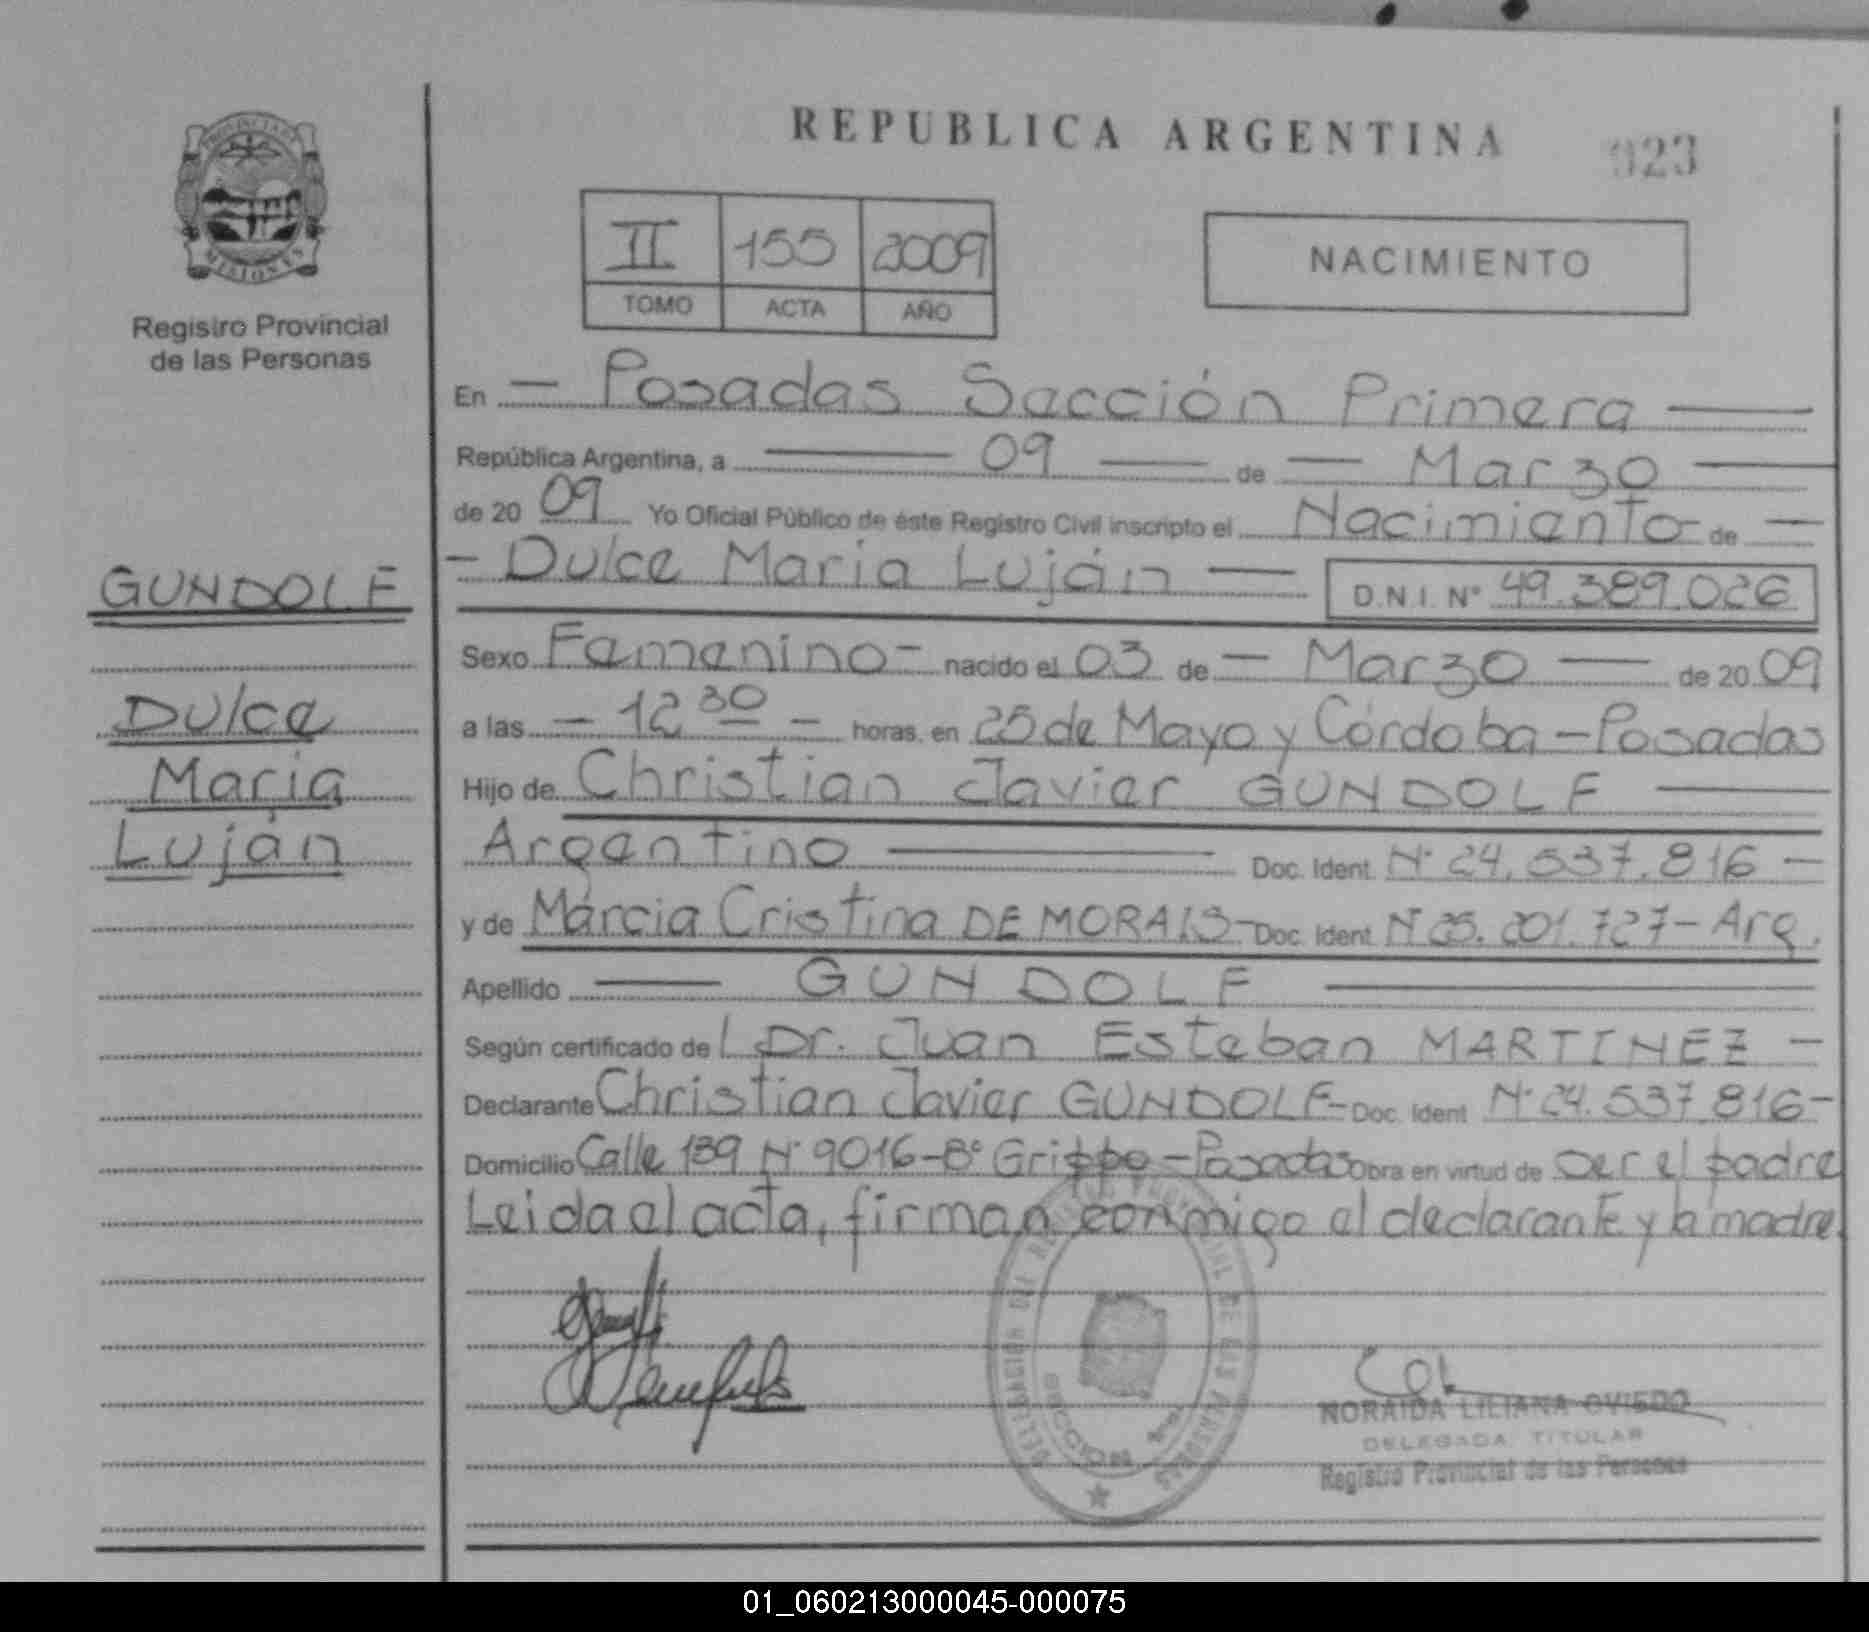 REPUBLICA ARGENTINA
023
PROVINCIA DE
MISIONES
Registro Provincial
de las Personas
II 155 2009
TOMO ACTA AÑO
NACIMIENTO
En — Posadas Sección Primera —
República Argentina, a — 09 — de — Marzo —
de 20 09 Yo Oficial Público de éste Registro Civil inscripto el Nacimiento de —
— Dulce Maria Luján — D.N.I. Nº 49.389.026
GUNDOLF
Dulce
Maria
Luján
Sexo Femenino - nacido el 03 de — Marzo — de 20 09
a las — 12 30 — horas. en 25 de Mayo y Córdoba - Posadas
Hijo de Christian Javier GUNDOLF —
Argentino — Doc. Ident. Nº 24.537.816 —
y de Márcia Cristina DE MORAIS - Doc. Ident. Nº 25.201.727 - Arg.
Apellido — GUNDOLF —
Según certificado de l Dr. Juan Esteban MARTINEZ —
Declarante Christian Javier GUNDOLF - Doc. Ident Nº 24.537.816 -
Domicilio Calle 139 Nº 9016 - Bº Grippo - Posadas Obra en virtud de ser el padre
Leida el acta, firman conmigo el declarante y la madre.
DELEGACION DEL REGISTRO PROVINCIAL DE LAS PERSONAS
SECCION 1ra.
NORAIDA LILIANA OVIEDO
DELEGADA TITULAR
Registro Provincial de las Personas
01_060213000045-000075